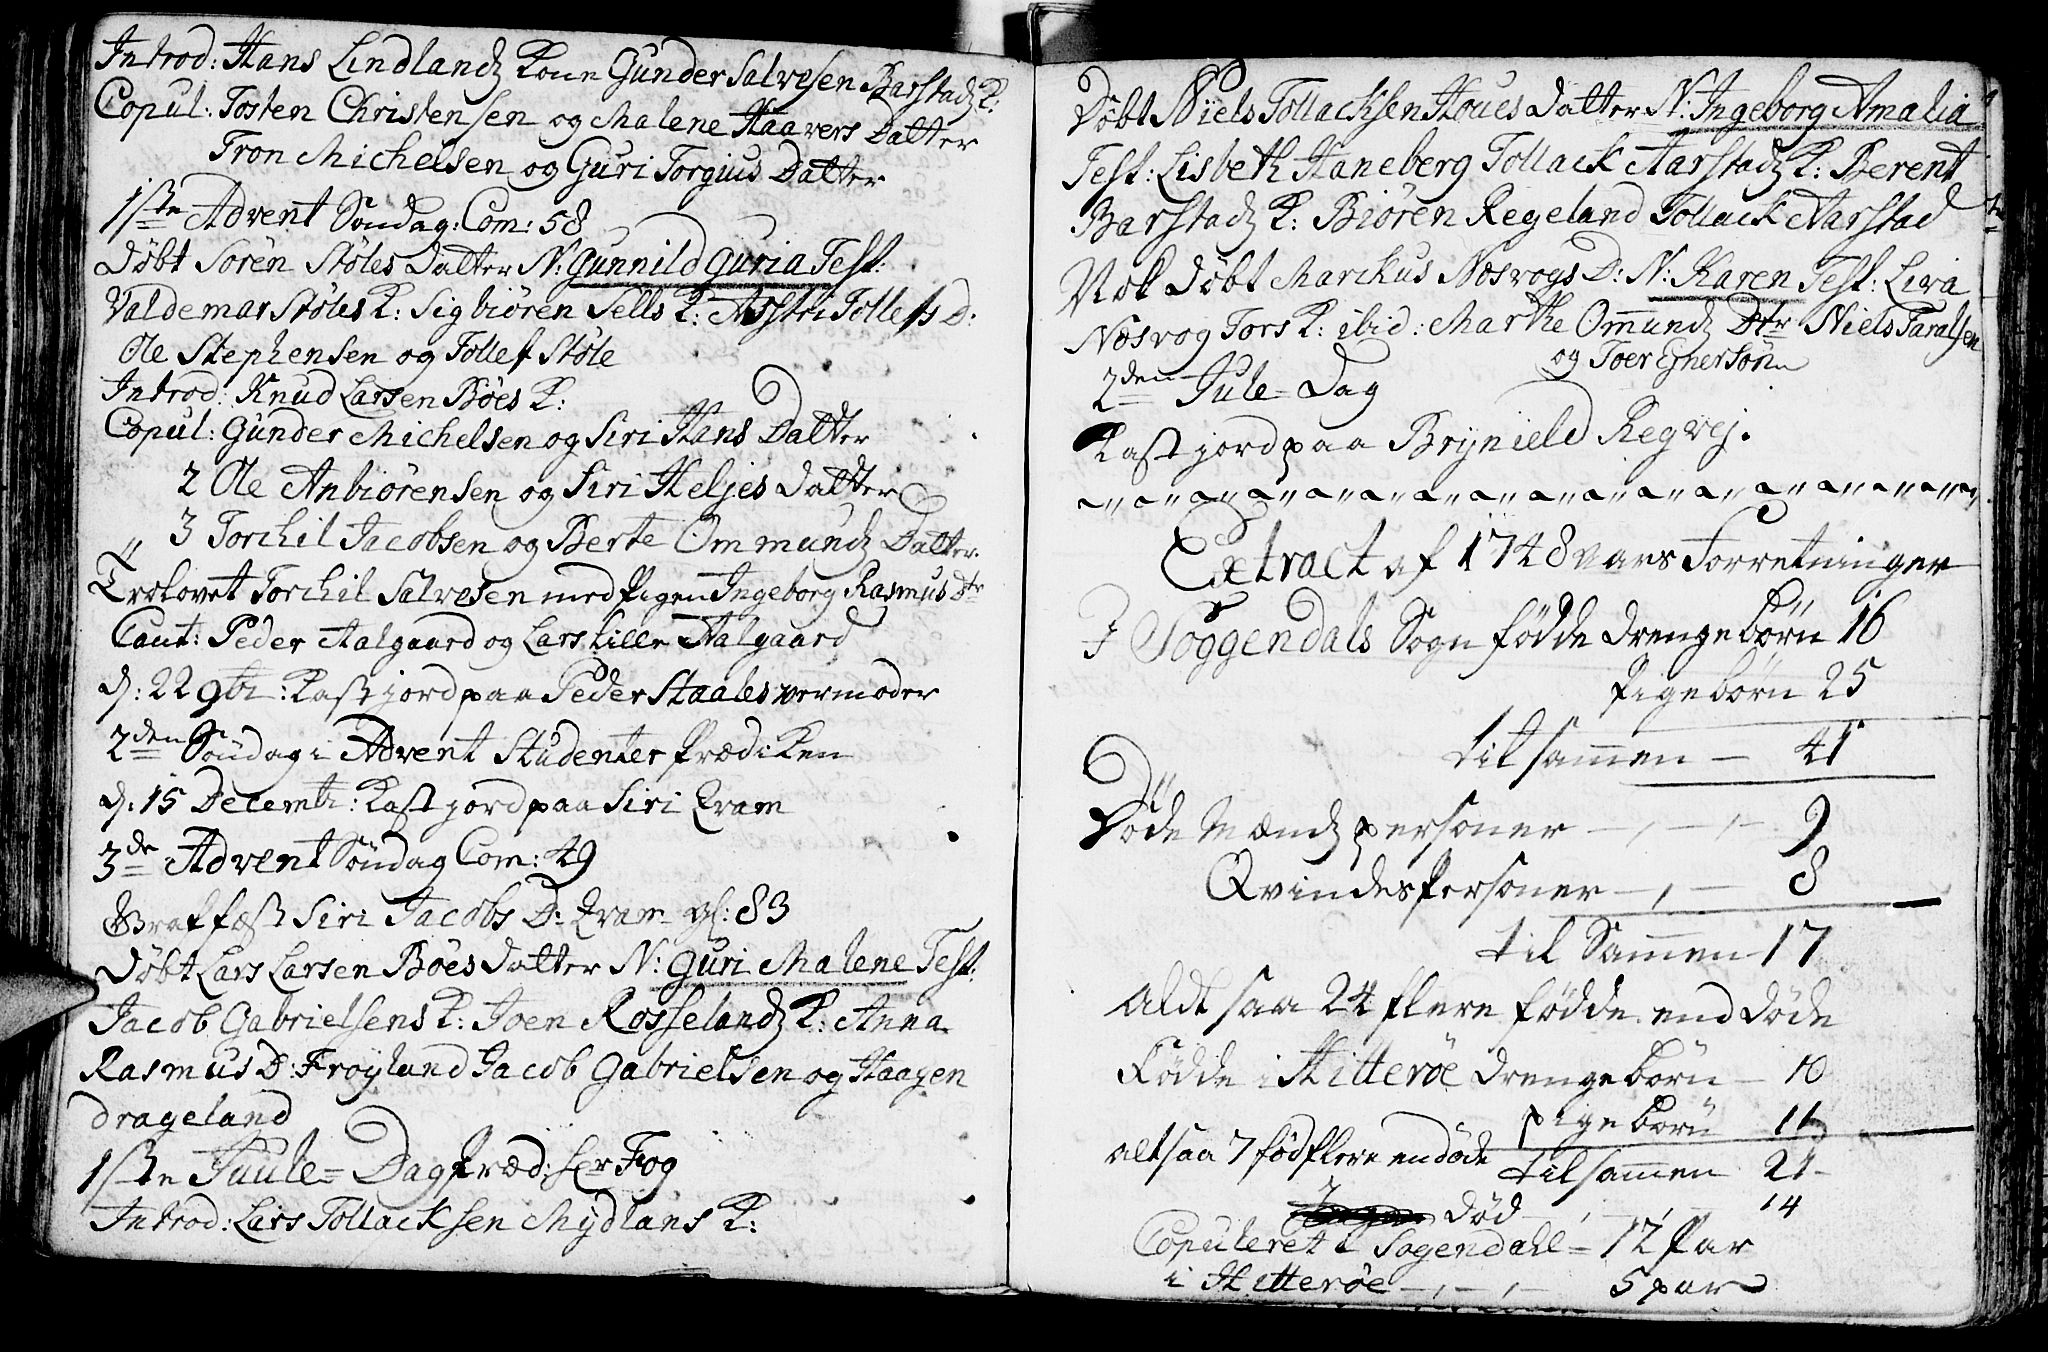 Introd: Hans Lindlandz Kone Gunder Salvesen Barstadz K:
Copul: Tosten Christensen og Malene Haavers Datter
Tron Michelsen og Guri Torgius Datter
1ste Advent Søndag: Com: 58
Døbt Søren Støles Datter N: Gunnild Guria Test:
Valdemar Støles K: Sigbiøren Sells K: Asstri Tollefs D:
Ole Stephensen og Tollef Støle
Introd: Knud Larsen Bøes K:
Copul: Gunder Michelsen og Siri Hans Datter
2 Ole Anbiørensen og Siri Heljes Datter
3 Torchil Jacobsen og Berte Ommundz Datter.
Trolovet Torchil Salvesen med Pigen Ingeborg Rasmus Dtr
Caut: Peder Aalgaard og Lars Lille Aalgaard
d: 22 9br: Kast jord paa Peder Staales vermoder
2den Søndag i Advent Studenter Prædiken
d. 15 Decembr: Kast jord paa Siri Qvam
3de Advent Søndag Com: 49
Graffæst Siri Jacobs D: Qvam gl: 83
Døbt Lars Larsen Bøes Datter N: Guri Malene Test:
Jacob Gabrielsens K: Joen Rosselandz K: Anna
Rasmus D: Frøyland Jacob Gabrielsen og Haagen
Drageland
1ste Juule=Dag Præd: Hr Fog
Introd: Lars Tollacksen Mydlans K:
Døbt Niels Tollacksen Houes Datter N: Ingeborg Amalia
Test: Lisbeth Haneberg Tollack Aarstadz K: Berent
Barstadz K: Biøren Regeland Tollack Aarstad
Nok Døbt Marckus Nosvogs D: N: Karen Test: Liva
Nosvog Tors K: ibid: Marthe Omundz Dtr Niels Taralsen
og Toer Egnersøn
2den Jule=Dag
Kast jord paa Brynield Regvej.
Extract af 1748 Aars Forretninger
I Soggendals Sogn fødde Drengebørn 16
Pigebørn 25
tilsammen – 41
Døde Mandz personer – , – , – 9
Qvindes Personer – , – 8
til Sammen 17
Altsaa 24 flere fødde end døde
Fødde i Hitterøe Drengebørn – 10
pigebørn 11
altsaa 7 fød flere en døde tilsammen 21
død – , – , – 14
Copuleret i Sogendahl = 12 Par
i Hitterøe – , – , – 5 par